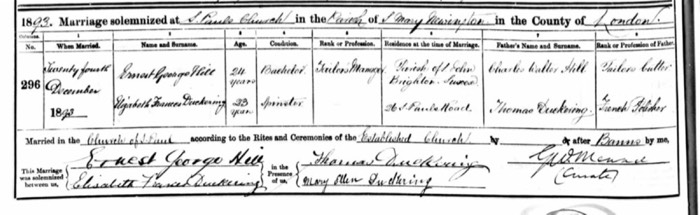 1893. Marriage solemnized at St Pauls Church in the Parish of St Mary Newington in the County of London
No. When Married. Name and Surname. Age. Condition. Rank or Profession. Residence at the time of Marriage. Father's Name and Surname. Rank or Profession of Father.
296 Twenty fourth December 1893 Ernest George Hill 24 years Bachelor Tailors Manager Parish of St John Brighton Sussex Charles Walter Hill Tailors Cutter
Elizabeth Frances Duckering 23 years Spinster St Pauls Road Thomas Duckering French Polisher
Married in the Church of St Paul according to the Rites and Ceremonies of the Established Church by or after Banns by me,
This Marriage was solemnized between us, Ernest George Hill in the Presence of us, Thomas Duckering
Elizabeth Frances Duckering Mary Ellen Duckering (Curate)